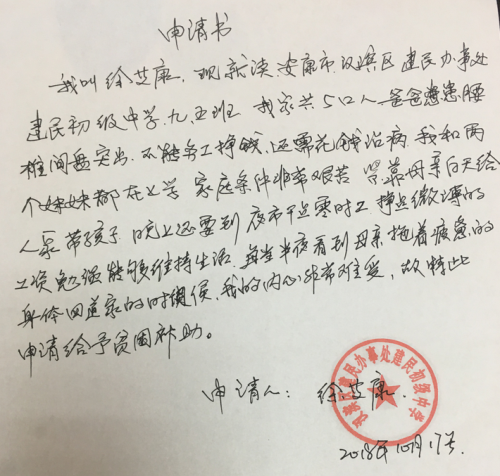 申请书
我叫徐芝康，现就读安康市汉滨区建民办事处
建民初级中学九.五班 我家共5口人，爸爸患腰
椎间盘突出，不能务工挣钱，还需花钱治病，我和两
个妹妹都在上学 家庭条件非常艰苦 靠母亲白天给
人家带孩子 晚上还要到夜市干点零时工 挣点微薄的
工资勉强能够维持生活，每当半夜看到母亲拖着疲惫的
身体回道家的时候，我的内心非常难受，故特此
申请给予贫困补助。
申请人：徐芝康.
汉滨区建民办事处建民初级中学
2018年10月17号